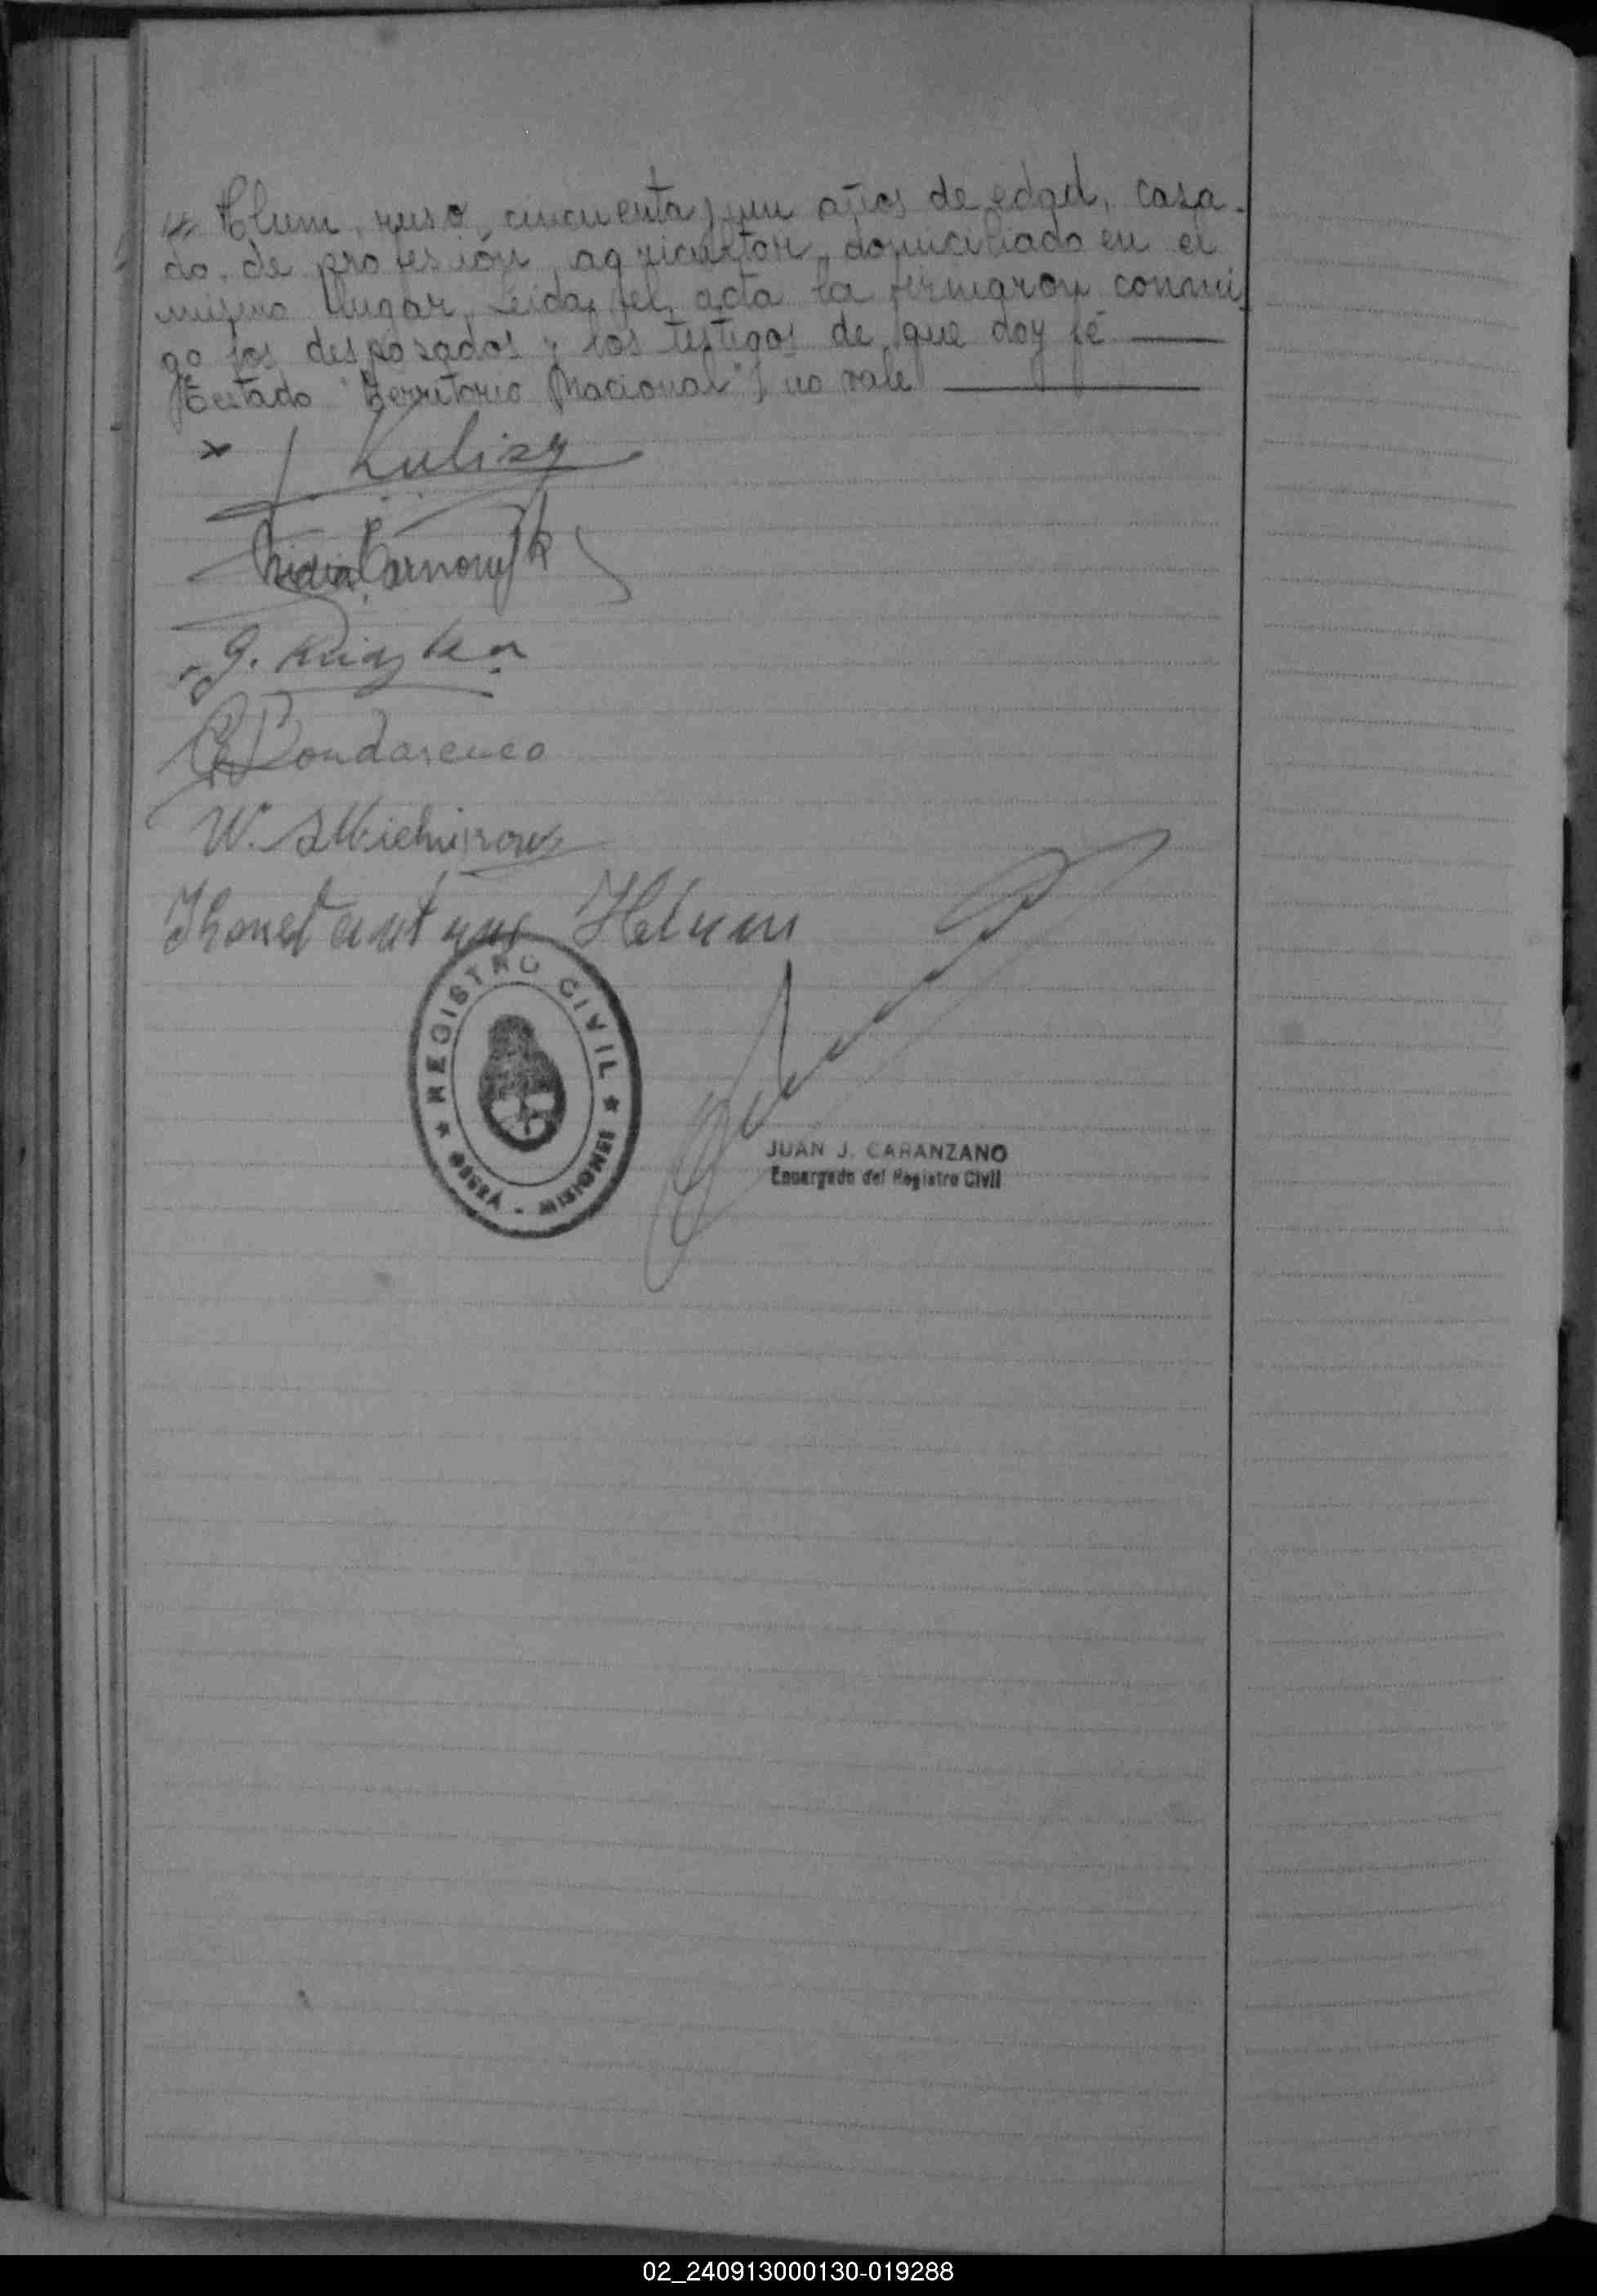 Hlum, ruso, cincuenta y un años de edad, casa-
do, de profesión agricultor, domiciliado en el
mismo lugar. Leida el acta la firmaron conmi-
go los desposados y los testigos de que doy fé
Testado "Territorio Nacional" no vale
Kulizy
Lidia
J.
Bondarenco
W.
Hlum
REGISTRO CIVIL
MISIONES
JUAN J. CARANZANO
Encargado del Registro Civil
02_240913000130-019288